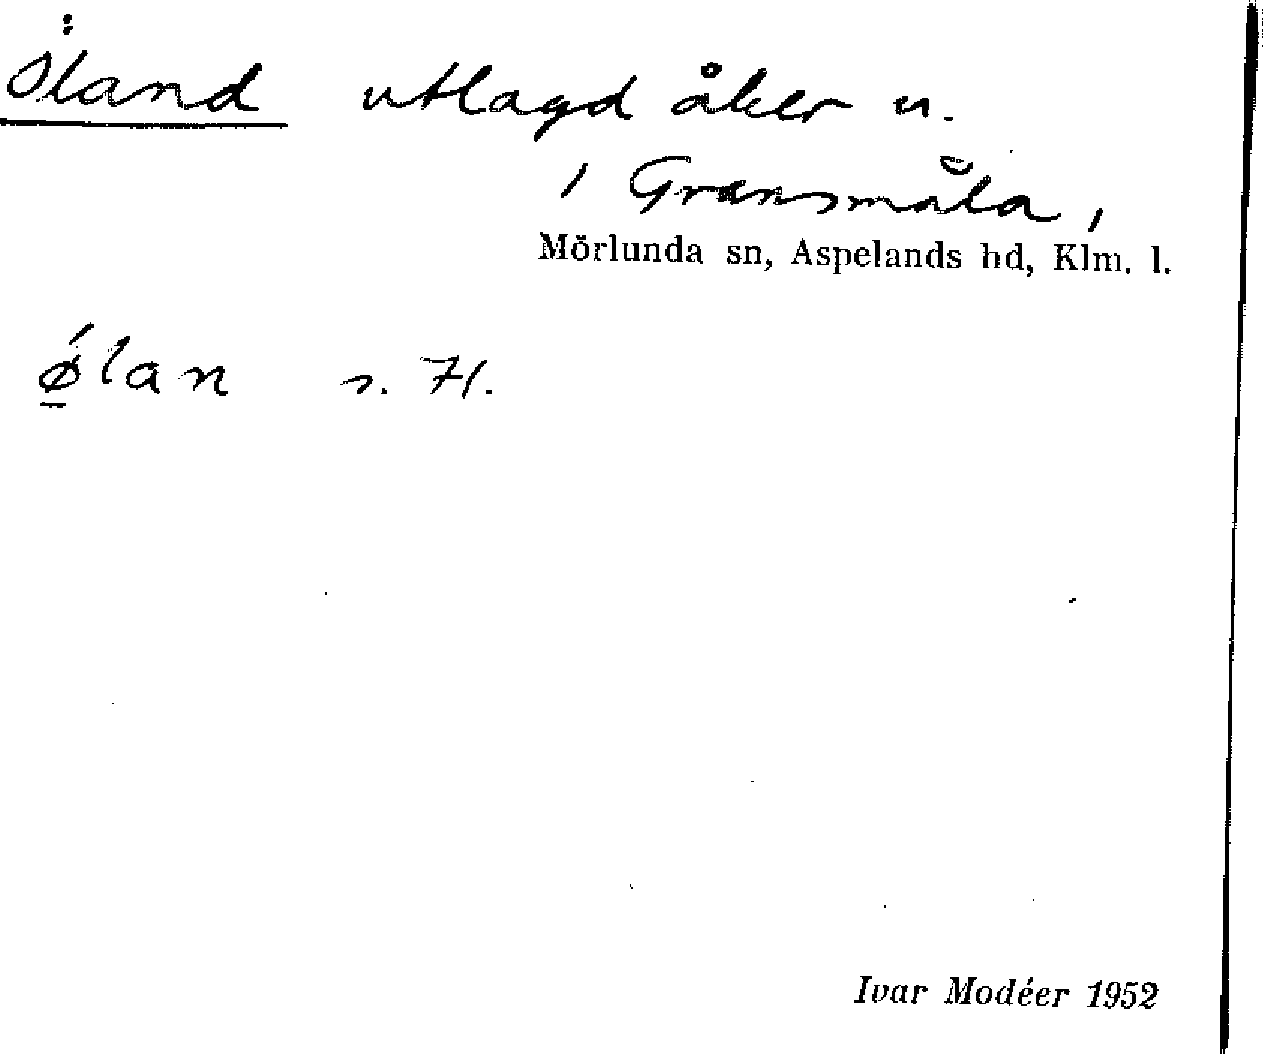 Öland utlagd åker n.
i Gransmåla,
Mörlunda sn, Aspelands hd, Klm. l.
ølan n. Hl.
Ivar Modéer 1952